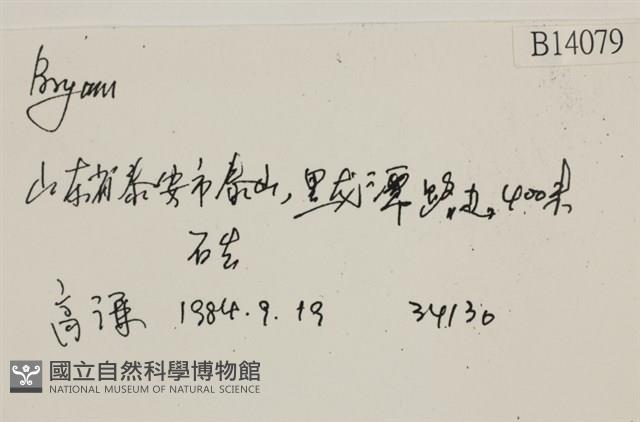 B14079
Bryum
山东省泰安市泰山，黑龙潭路边，400米
石生
高谦 1984.9.19 34130
國立自然科學博物館
NATIONAL MUSEUM OF NATURAL SCIENCE